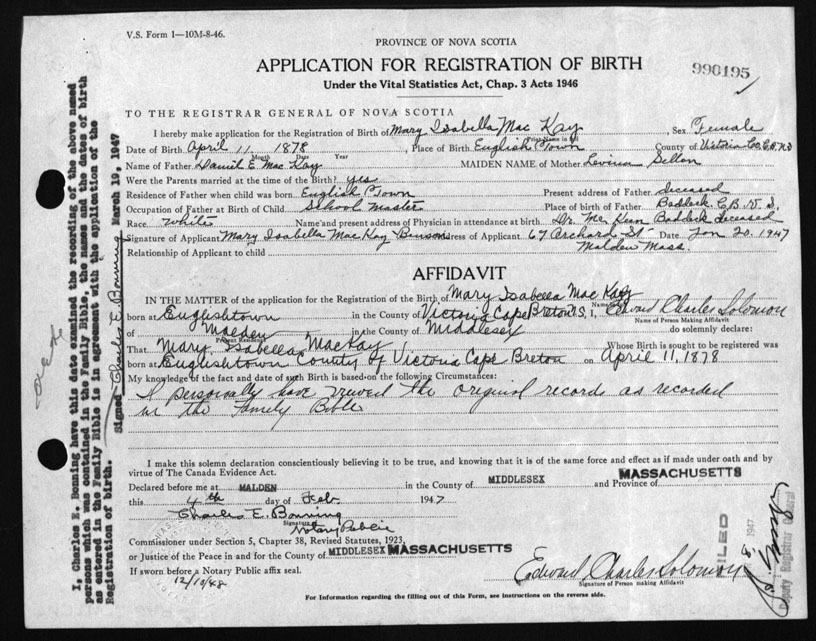 V.S. Form 1—10M-8-46.
PROVINCE OF NOVA SCOTIA
APPLICATION FOR REGISTRATION OF BIRTH
990195
Under the Vital Statistics Act, Chap. 3 Acts 1946
TO THE REGISTRAR GENERAL OF NOVA SCOTIA
I hereby make application for the Registration of Birth of Mary Isabella Mac Kay, Sex Female
Print Name in full
Date of Birth April 11, 1878, Place of Birth English Town County of Victoria Co. C.B. N.S
Month Date Year
Name of Father Daniel E Mac Kay MAIDEN NAME of Mother Levina Sellon
Were the Parents married at the time of the Birth? yes
Residence of Father when child was born English Town Present address of Father Deceased
Occupation of Father at Birth of Child School Master Place of birth of Father Baddeck C.B. N.S,
Race White Name and present address of Physician in attendance at birth Dr. Baddeck deceased
Signature of Applicant Mary Isabella Mac Kay Address of Applicant 67 Orchard St Date Jan 20. 1947
Malden Mass.
Relationship of Applicant to child
AFFIDAVIT
IN THE MATTER of the application for the Registration of the Birth of Mary Isabella Mac Kay
born at Englishtown in the County of Victoria Cape Breton N.S, I, Edward Charles Solomon
Name of Person Making Affidavit
of Malden in the County of Middlesex do solemnly declare:
Present Residence
That Mary Isabella MacKay Whose Birth is sought to be registered was
born at Englishtown County of Victoria Cape Breton on April 11, 1878
My knowledge of the fact and date of such Birth is based on the following Circumstances:
I personally have viewed the original records as recorded
in the Family Bible
I make this solemn declaration conscientiously believing it to be true, and knowing that it is of the same force and effect as if made under oath and by
virtue of The Canada Evidence Act.
Declared before me at MALDEN in the County of MIDDLESEX and Province of MASSACHUSETTS
this 4th day of Feb. 1947
Charles E. Bonning
Signature
Notary Public
Commissioner under Section 5, Chapter 38, Revised Statutes, 1923,
or Justice of the Peace in and for the County of MIDDLESEX MASSACHUSETTS
If sworn before a Notary Public affix seal.
12/10/48
Edward Charles Solomon
Signature of Person making Affidavit
For Information regarding the filling out of this Form, see instructions on the reverse side.
FILED
8 1947
Deputy Registrar General
I, Charles E. Bonning have this date examined the recording of the above named
persons which was contained in the Family Bible, the names and the dates of birth
as entered in the Family Bible is in agreement with the application of the
Registration of birth.
Signed Charles E Bonning March 19, 1947